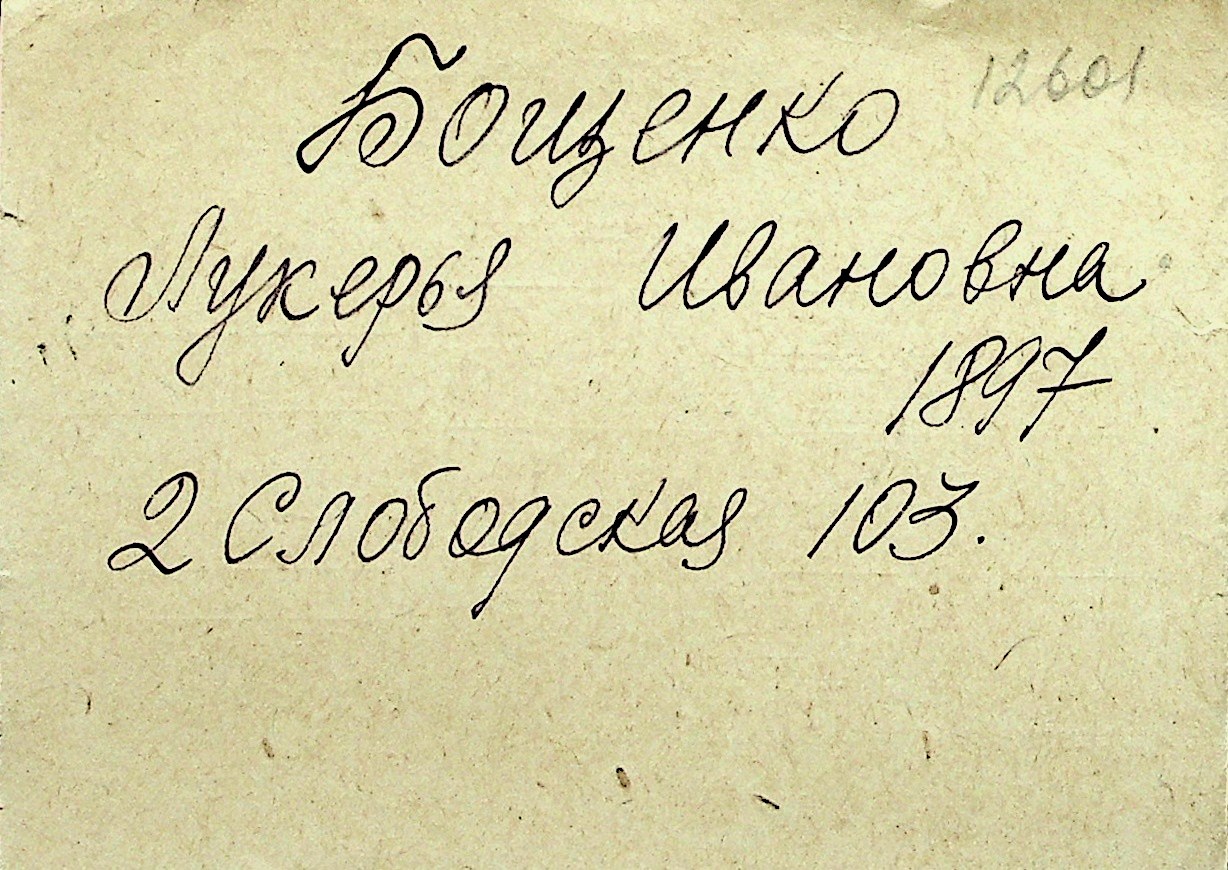 12601
Бощенко
Лукерья Ивановна
1897
2 Слободская 103.